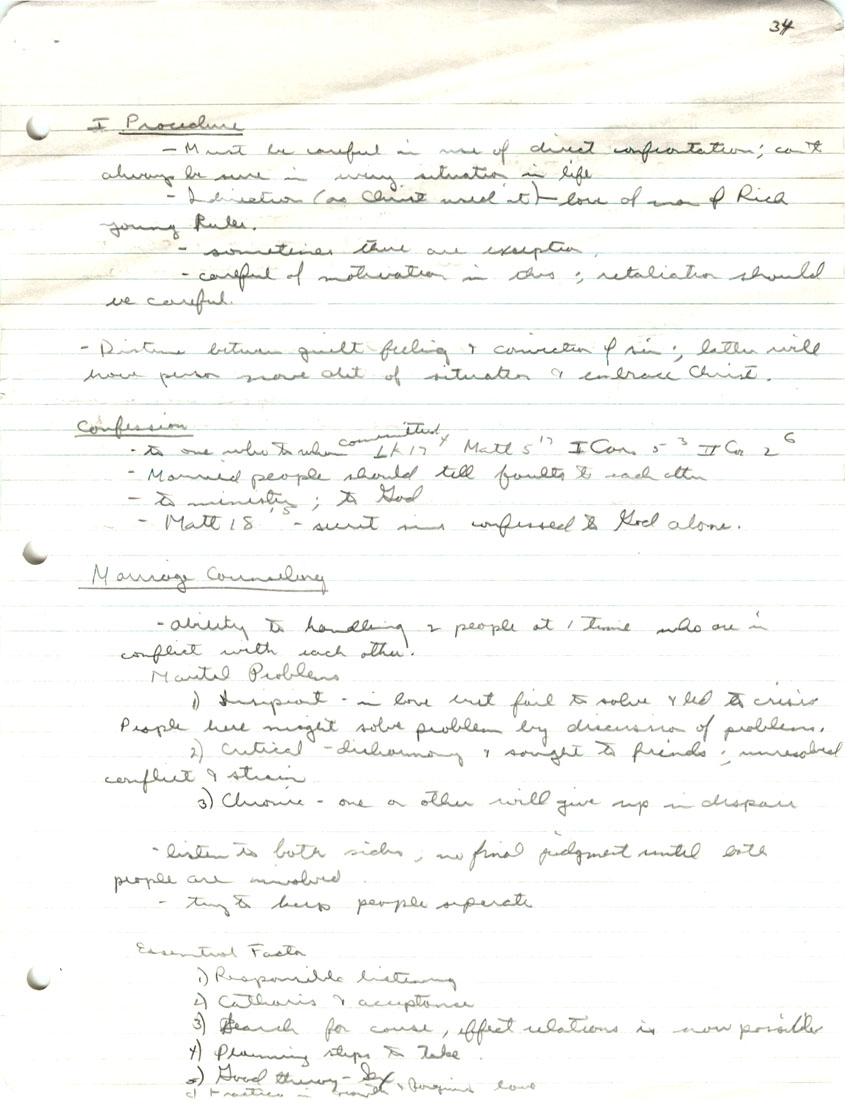 34
I Procedure
- Must be careful in use of direct confrontation; can't
always be sure in every situation in life
- Indirection (as Christ used it) - love of man of Rich
young Ruler.
- sometimes there are exception.
- careful of motivation in this; retaliation should
be careful.
- between guilt feeling & conviction of sin; latter will
have person move out of situation & embrace Christ.
Confession
- to one who to whom committed Lk 17 4 Matt 5 17 I Cor. 5 - 3 II Cor 2 6
- Married people should tell faults to each other
- to minister; to God
- Matt 18 15 - secret sins confessed to God alone.
Marriage Counseling
- ability to handling 2 people at 1 time who are in
conflict with each other.
Marital Problems
1) - in love but fail to solve & led to crisis
People here might solve problem by discussion of problems.
2) Critical - disharmony & sought to friends; unresolved
conflict & strain
3) Chronic - one or other will give up in dispair
- listen to both sides; no final judgment until both
people are involved.
- try to keep people seperate
Essential Factor
1) Responsible listening
2) Catharis & acceptance
3) Search for cause, effect relations is now possible
4) Planning steps to take.
5) Good theory -
6) Practice in growth & forgiving love